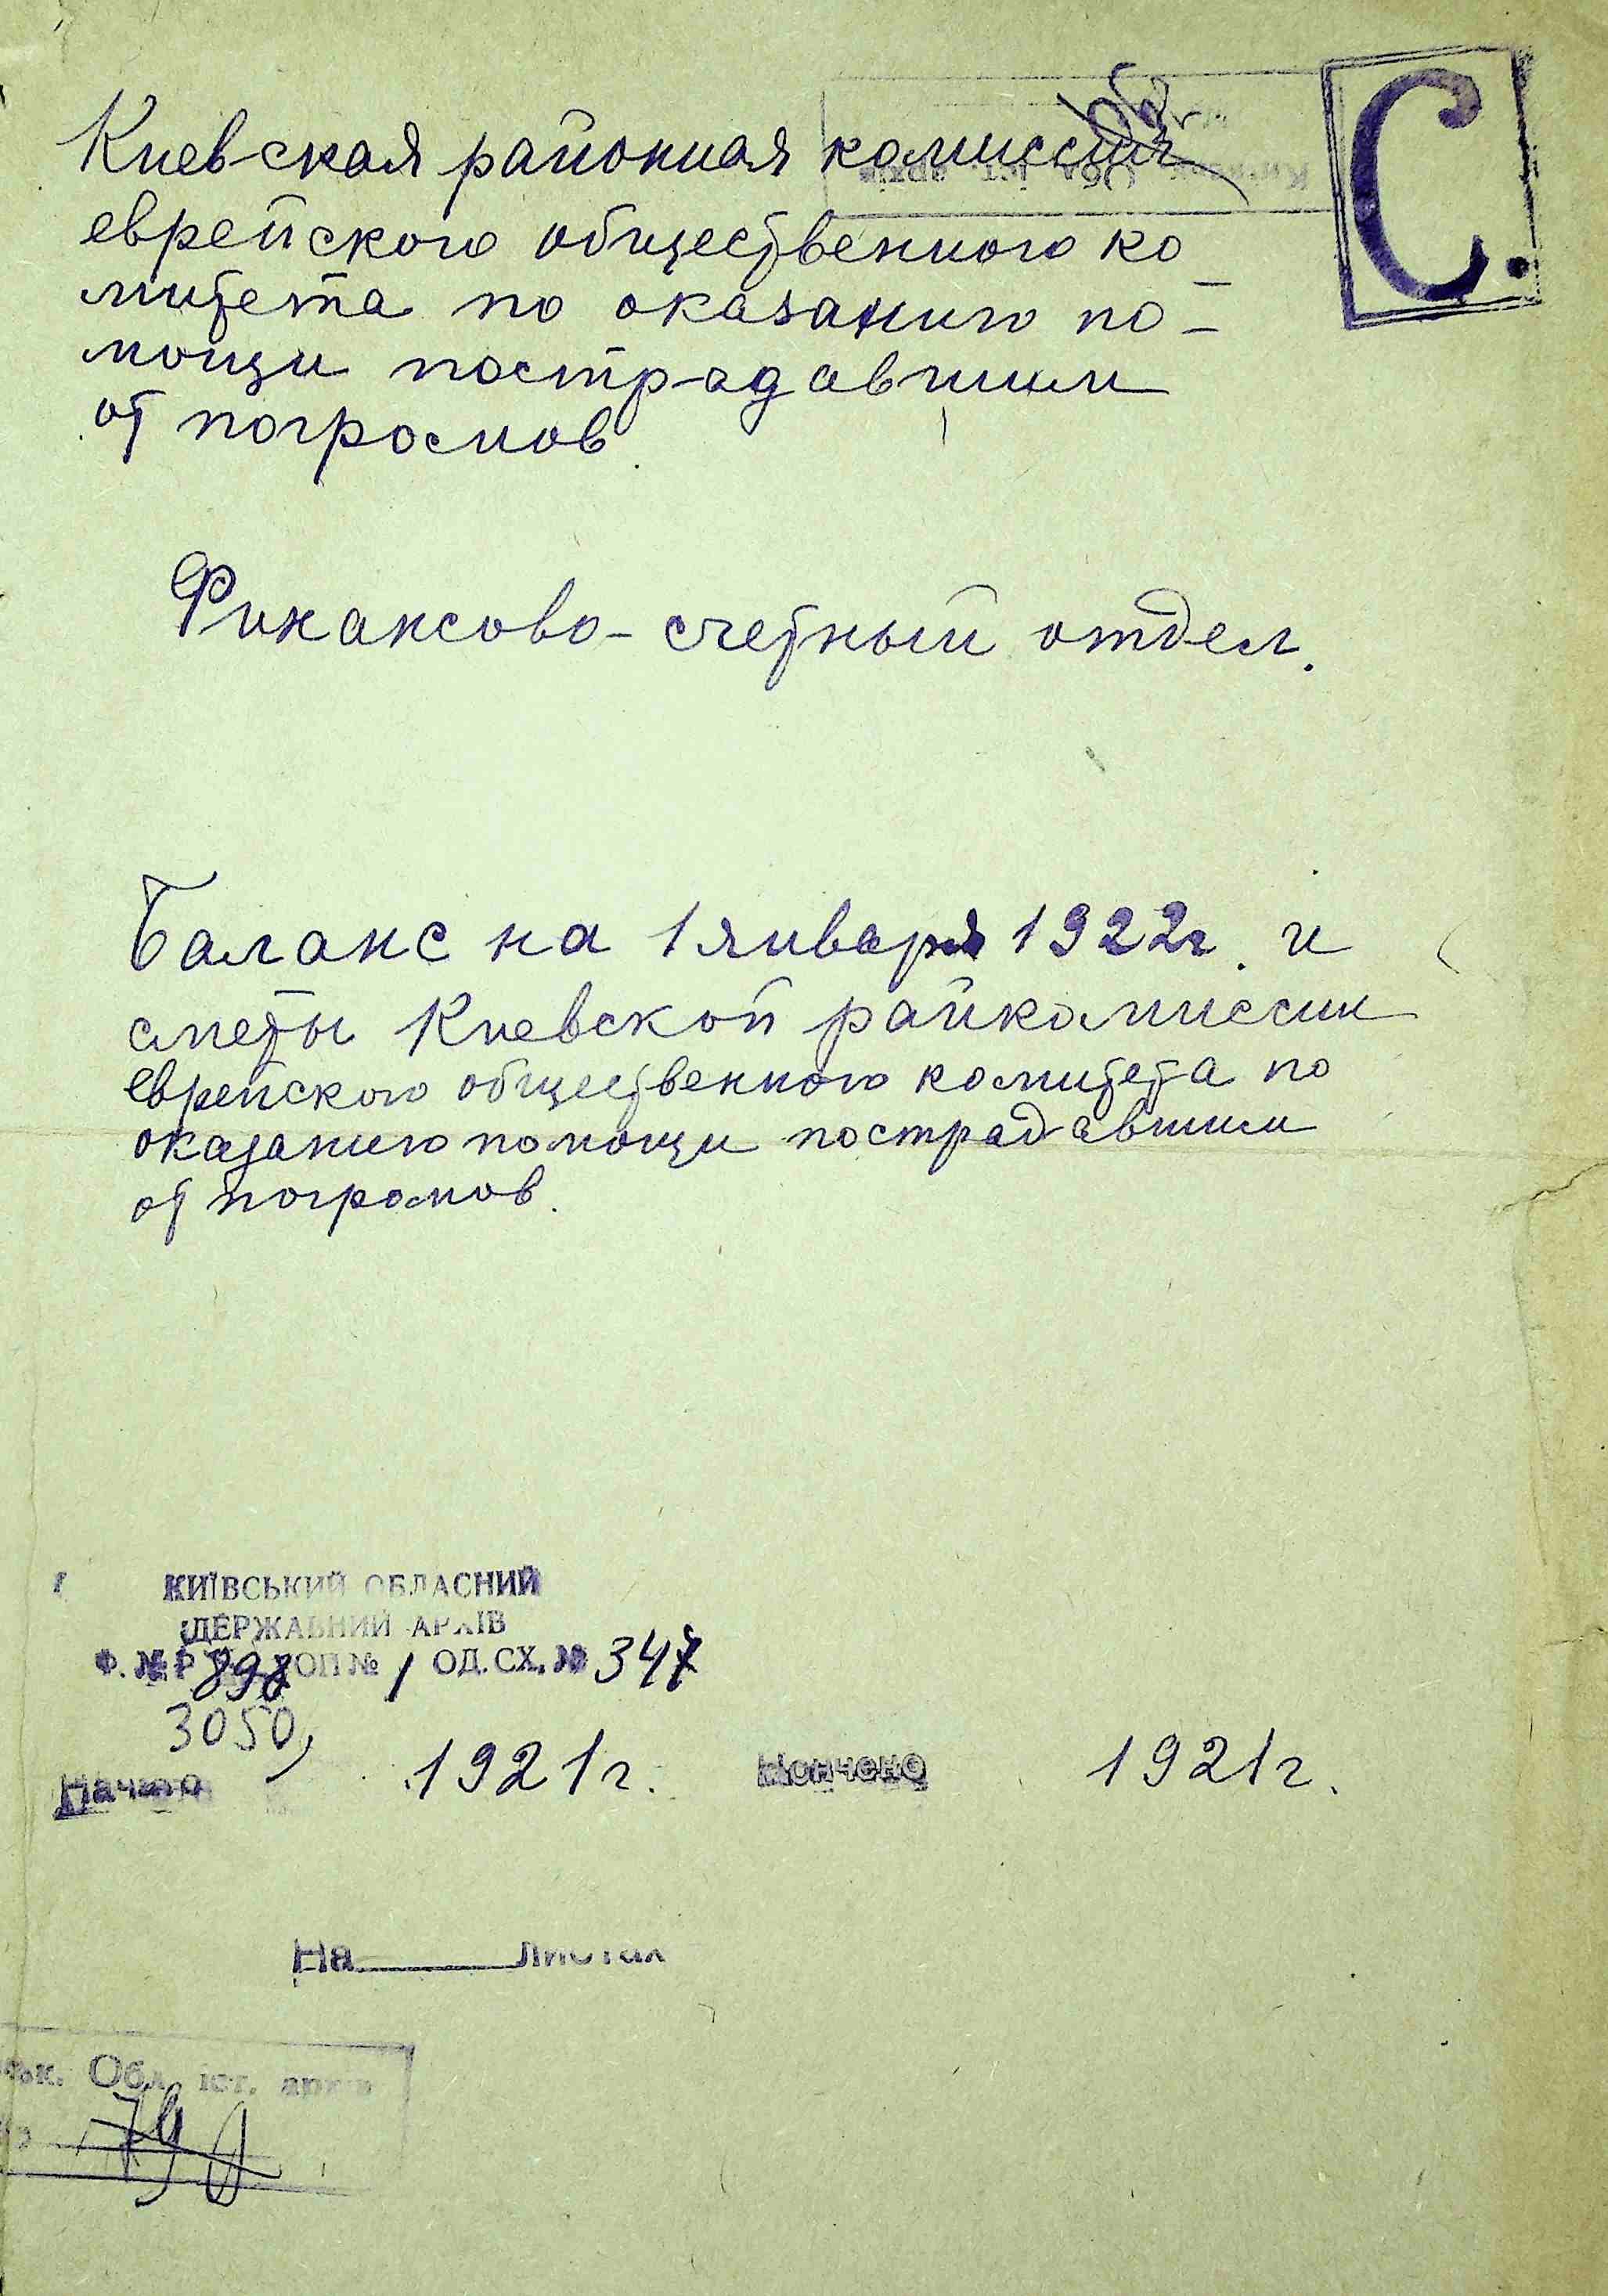 С.
Киевская районная комиссия
еврейского общественного ко-
митета по оказанию по-
мощи пострадавшим
от погромов.
Финансово-счетный отдел.
Баланс на 1 января 1922г. и
сметы Киевской райкомиссии
еврейского общественного комитета по
оказанию помощи пострадавшим
от погромов.
КИЇВСЬКИЙ ОБЛАСНИЙ
ДЕРЖАВНИЙ АРХІВ
Ф. № Р 898 ОП № 1 ОД. СХ. № 347
3050
Начато 1921г. Кончено 1921г.
На листах
Обл. іст. архів